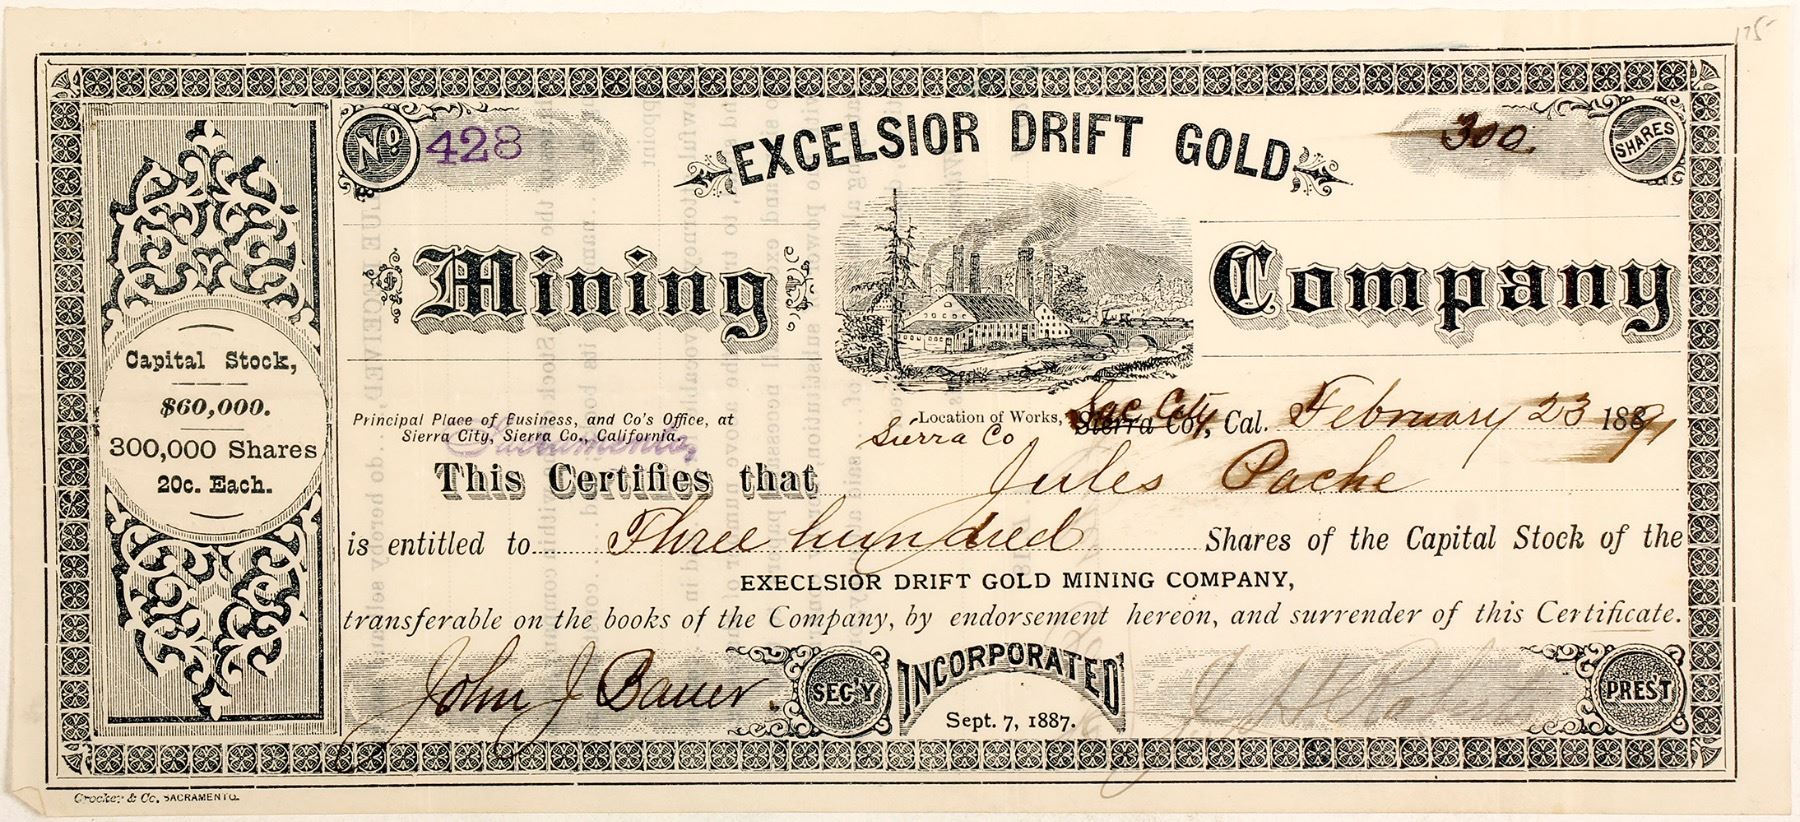 175-
No 428
EXCELSIOR DRIFT GOLD
300
SHARES
Mining Company
Capital Stock,
$60,000.
300,000 Shares
20c. Each.
Principal Place of Business, and Co's Office, at
Sierra City, Sierra Co., California.
Sacramento,
Location of Works, Sierra Co., Cal. February 23 1889
Sac City
Sierra Co
This Certifies that Jules Pache
is entitled to Three hundred Shares of the Capital Stock of the
EXECLSIOR DRIFT GOLD MINING COMPANY,
transferable on the books of the Company, by endorsement hereon, and surrender of this Certificate.
John J Bauer
SEC'Y
INCORPORATED
Sept. 7, 1887.
J. H. Roberts
PRES'T
Crocker & Co. SACRAMENTO.